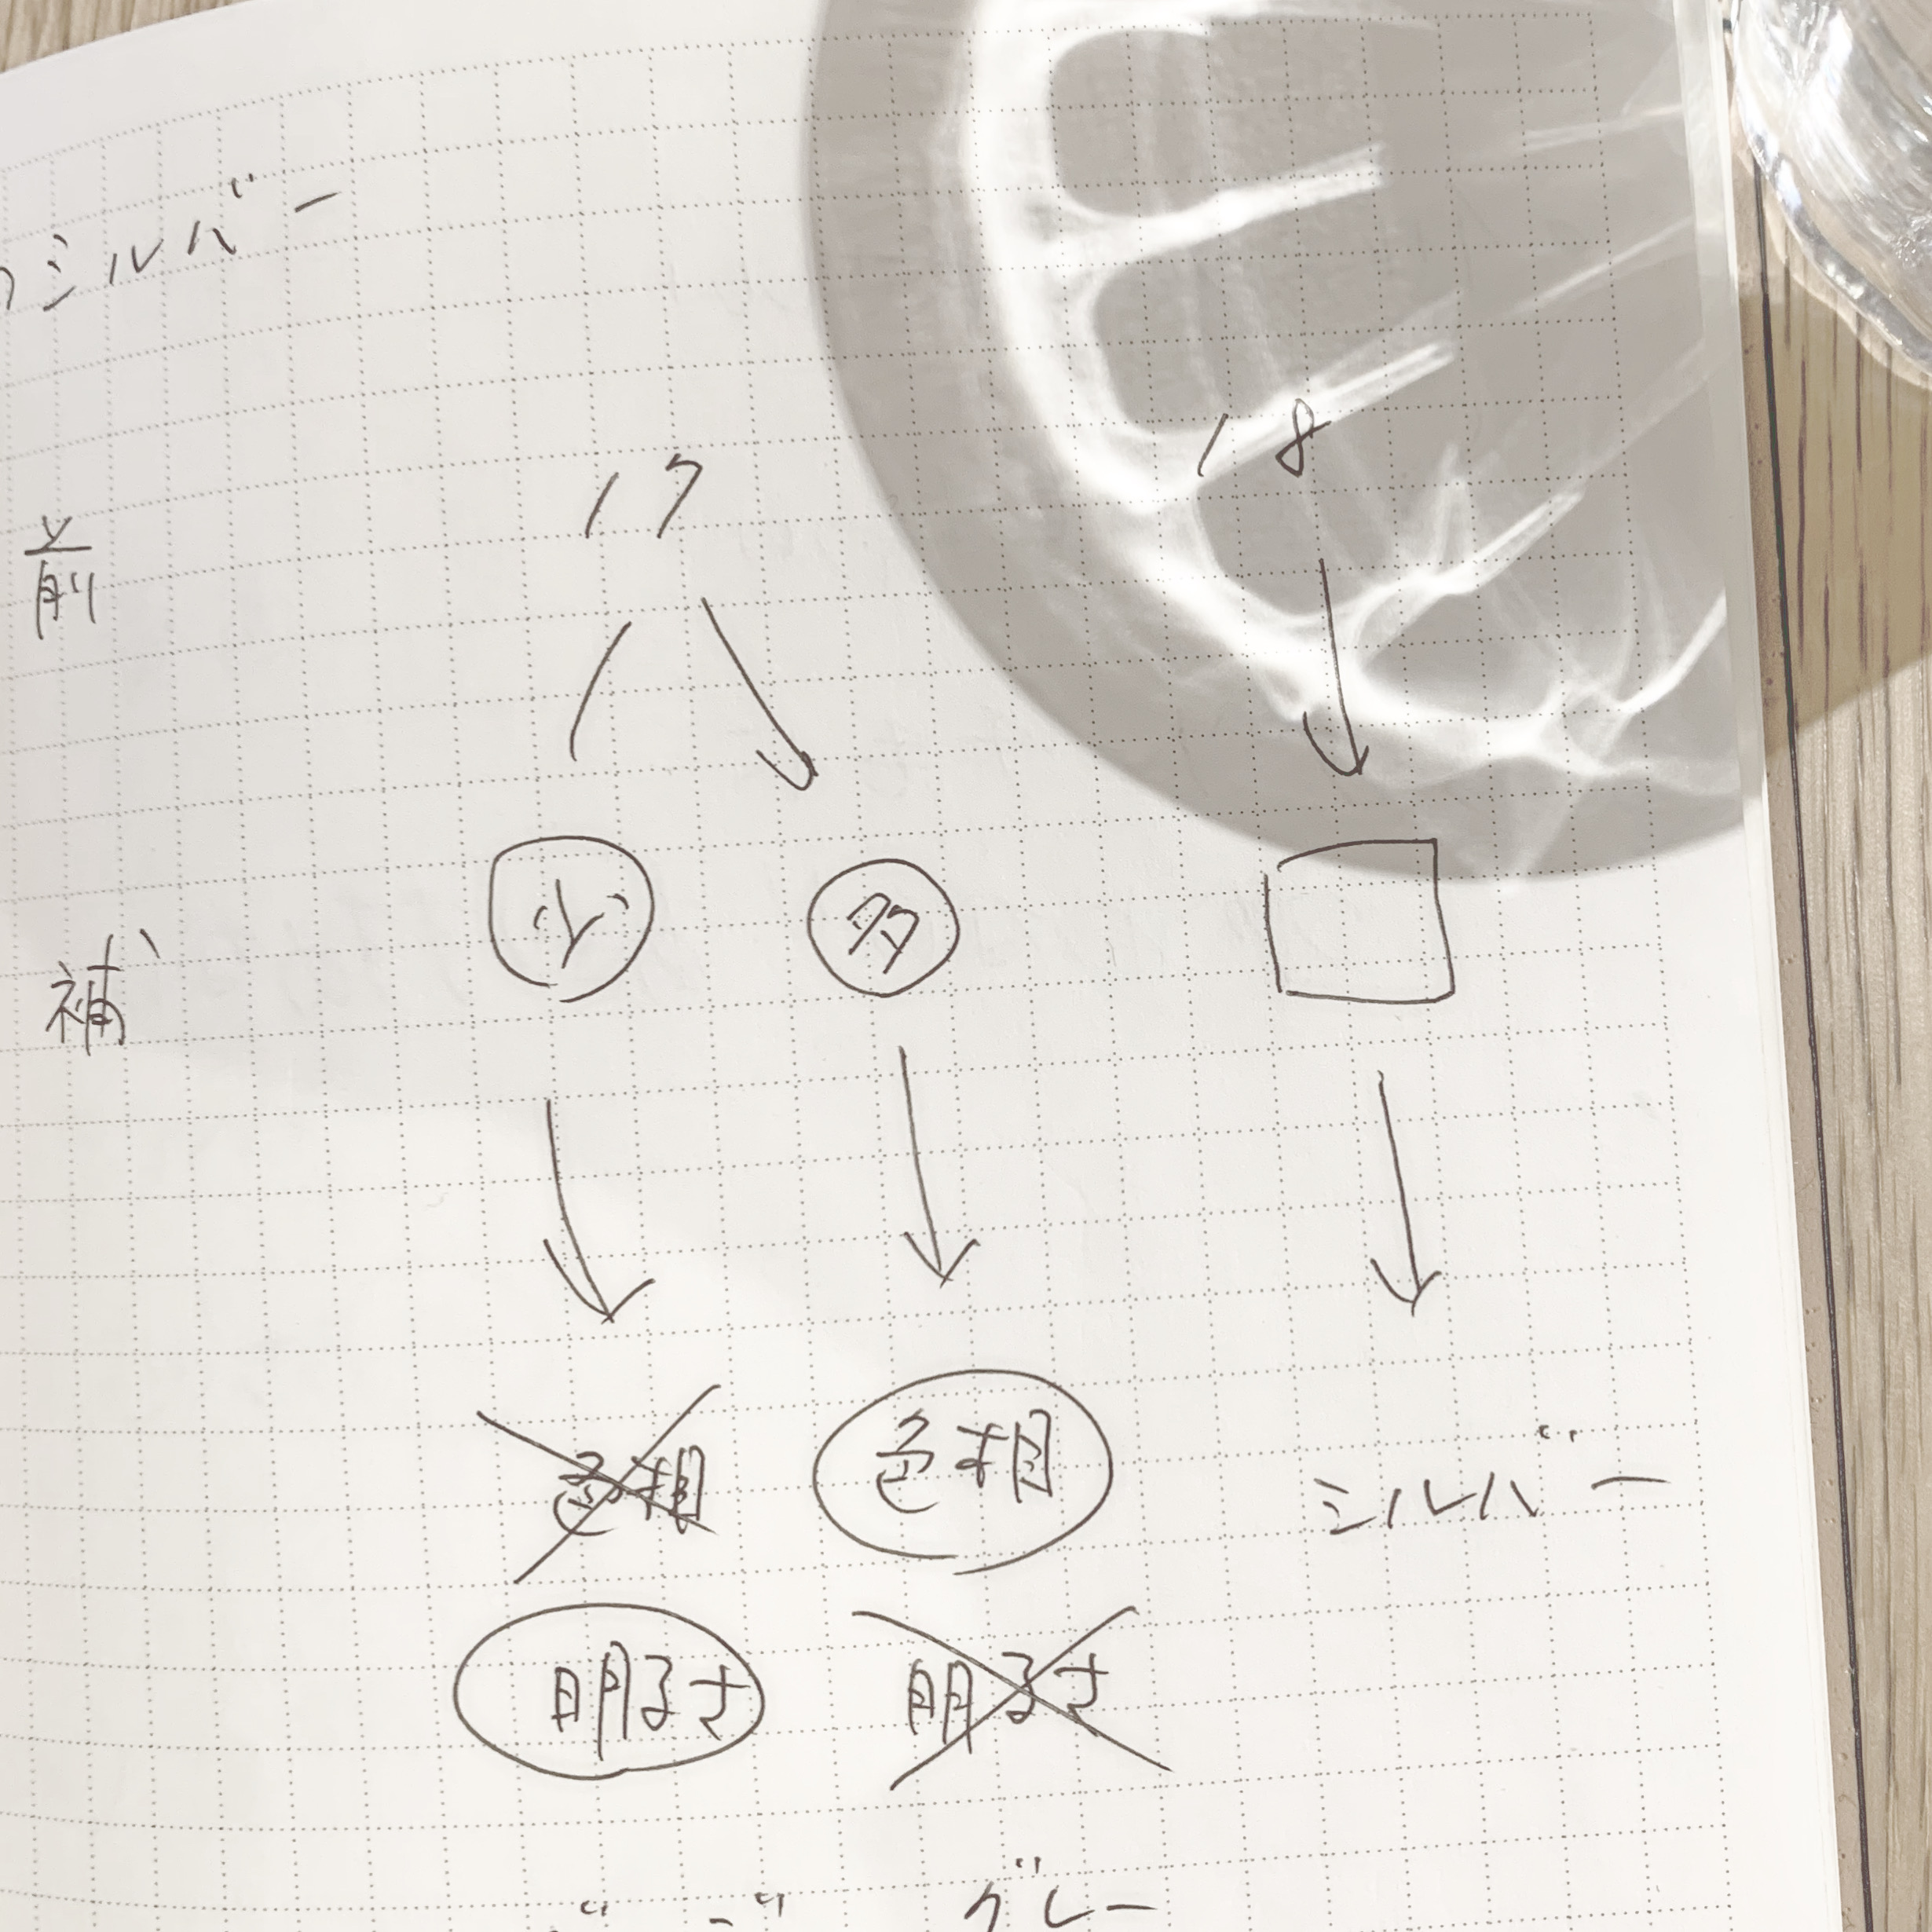 シルバー
17 18
前
少 多
補
色相 色相 シルバー
明るさ 明るさ
グレー